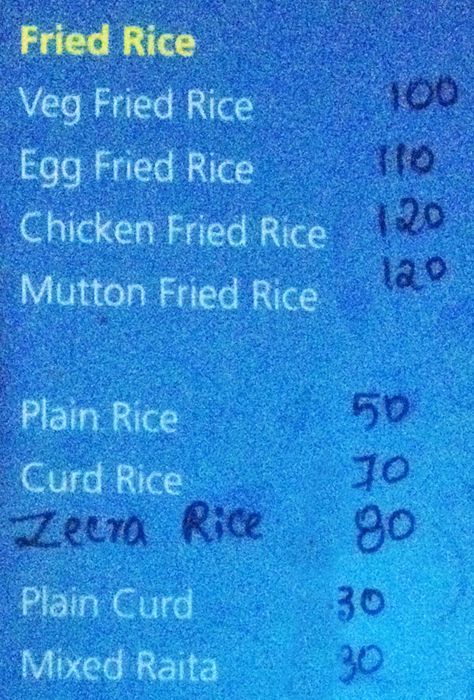 Fried Rice
Veg Fried Rice 100
Egg Fried Rice 110
Chicken Fried Rice 120
Mutton Fried Rice 120
Plain Rice 50
Curd Rice 70
Zeera Rice 80
Plain Curd 30
Mixed Raita 30